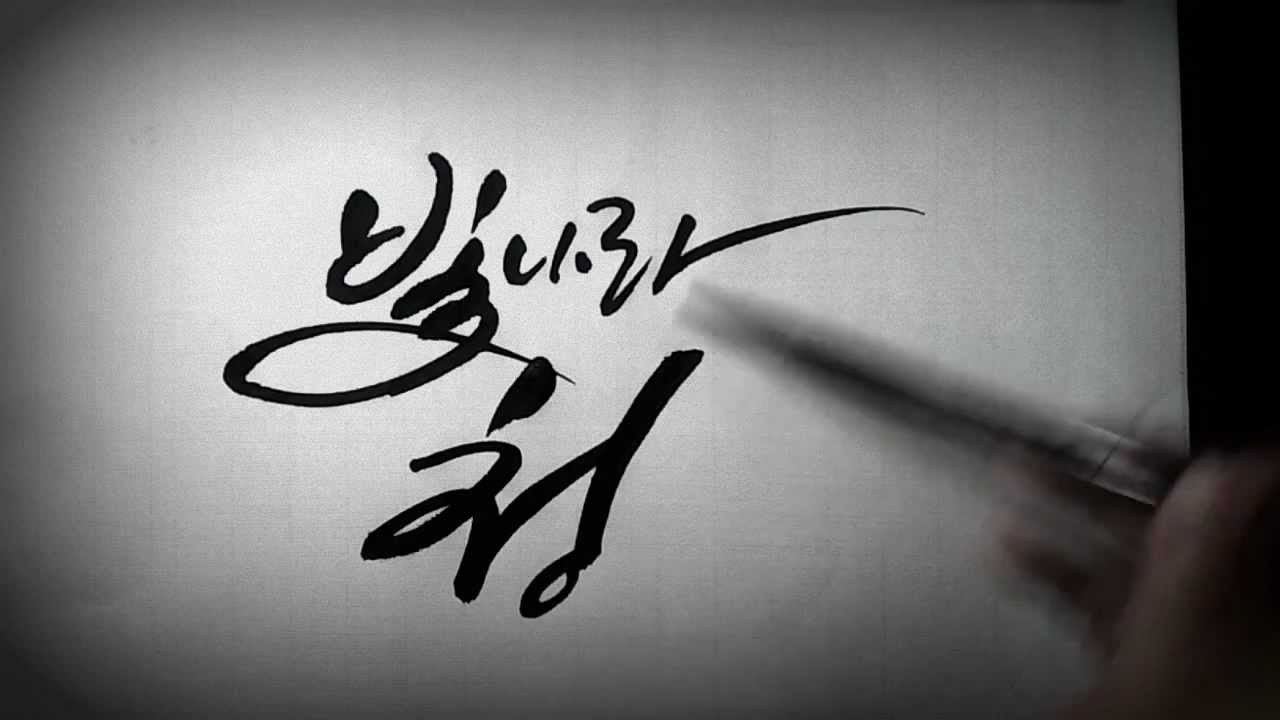 빛나라
청